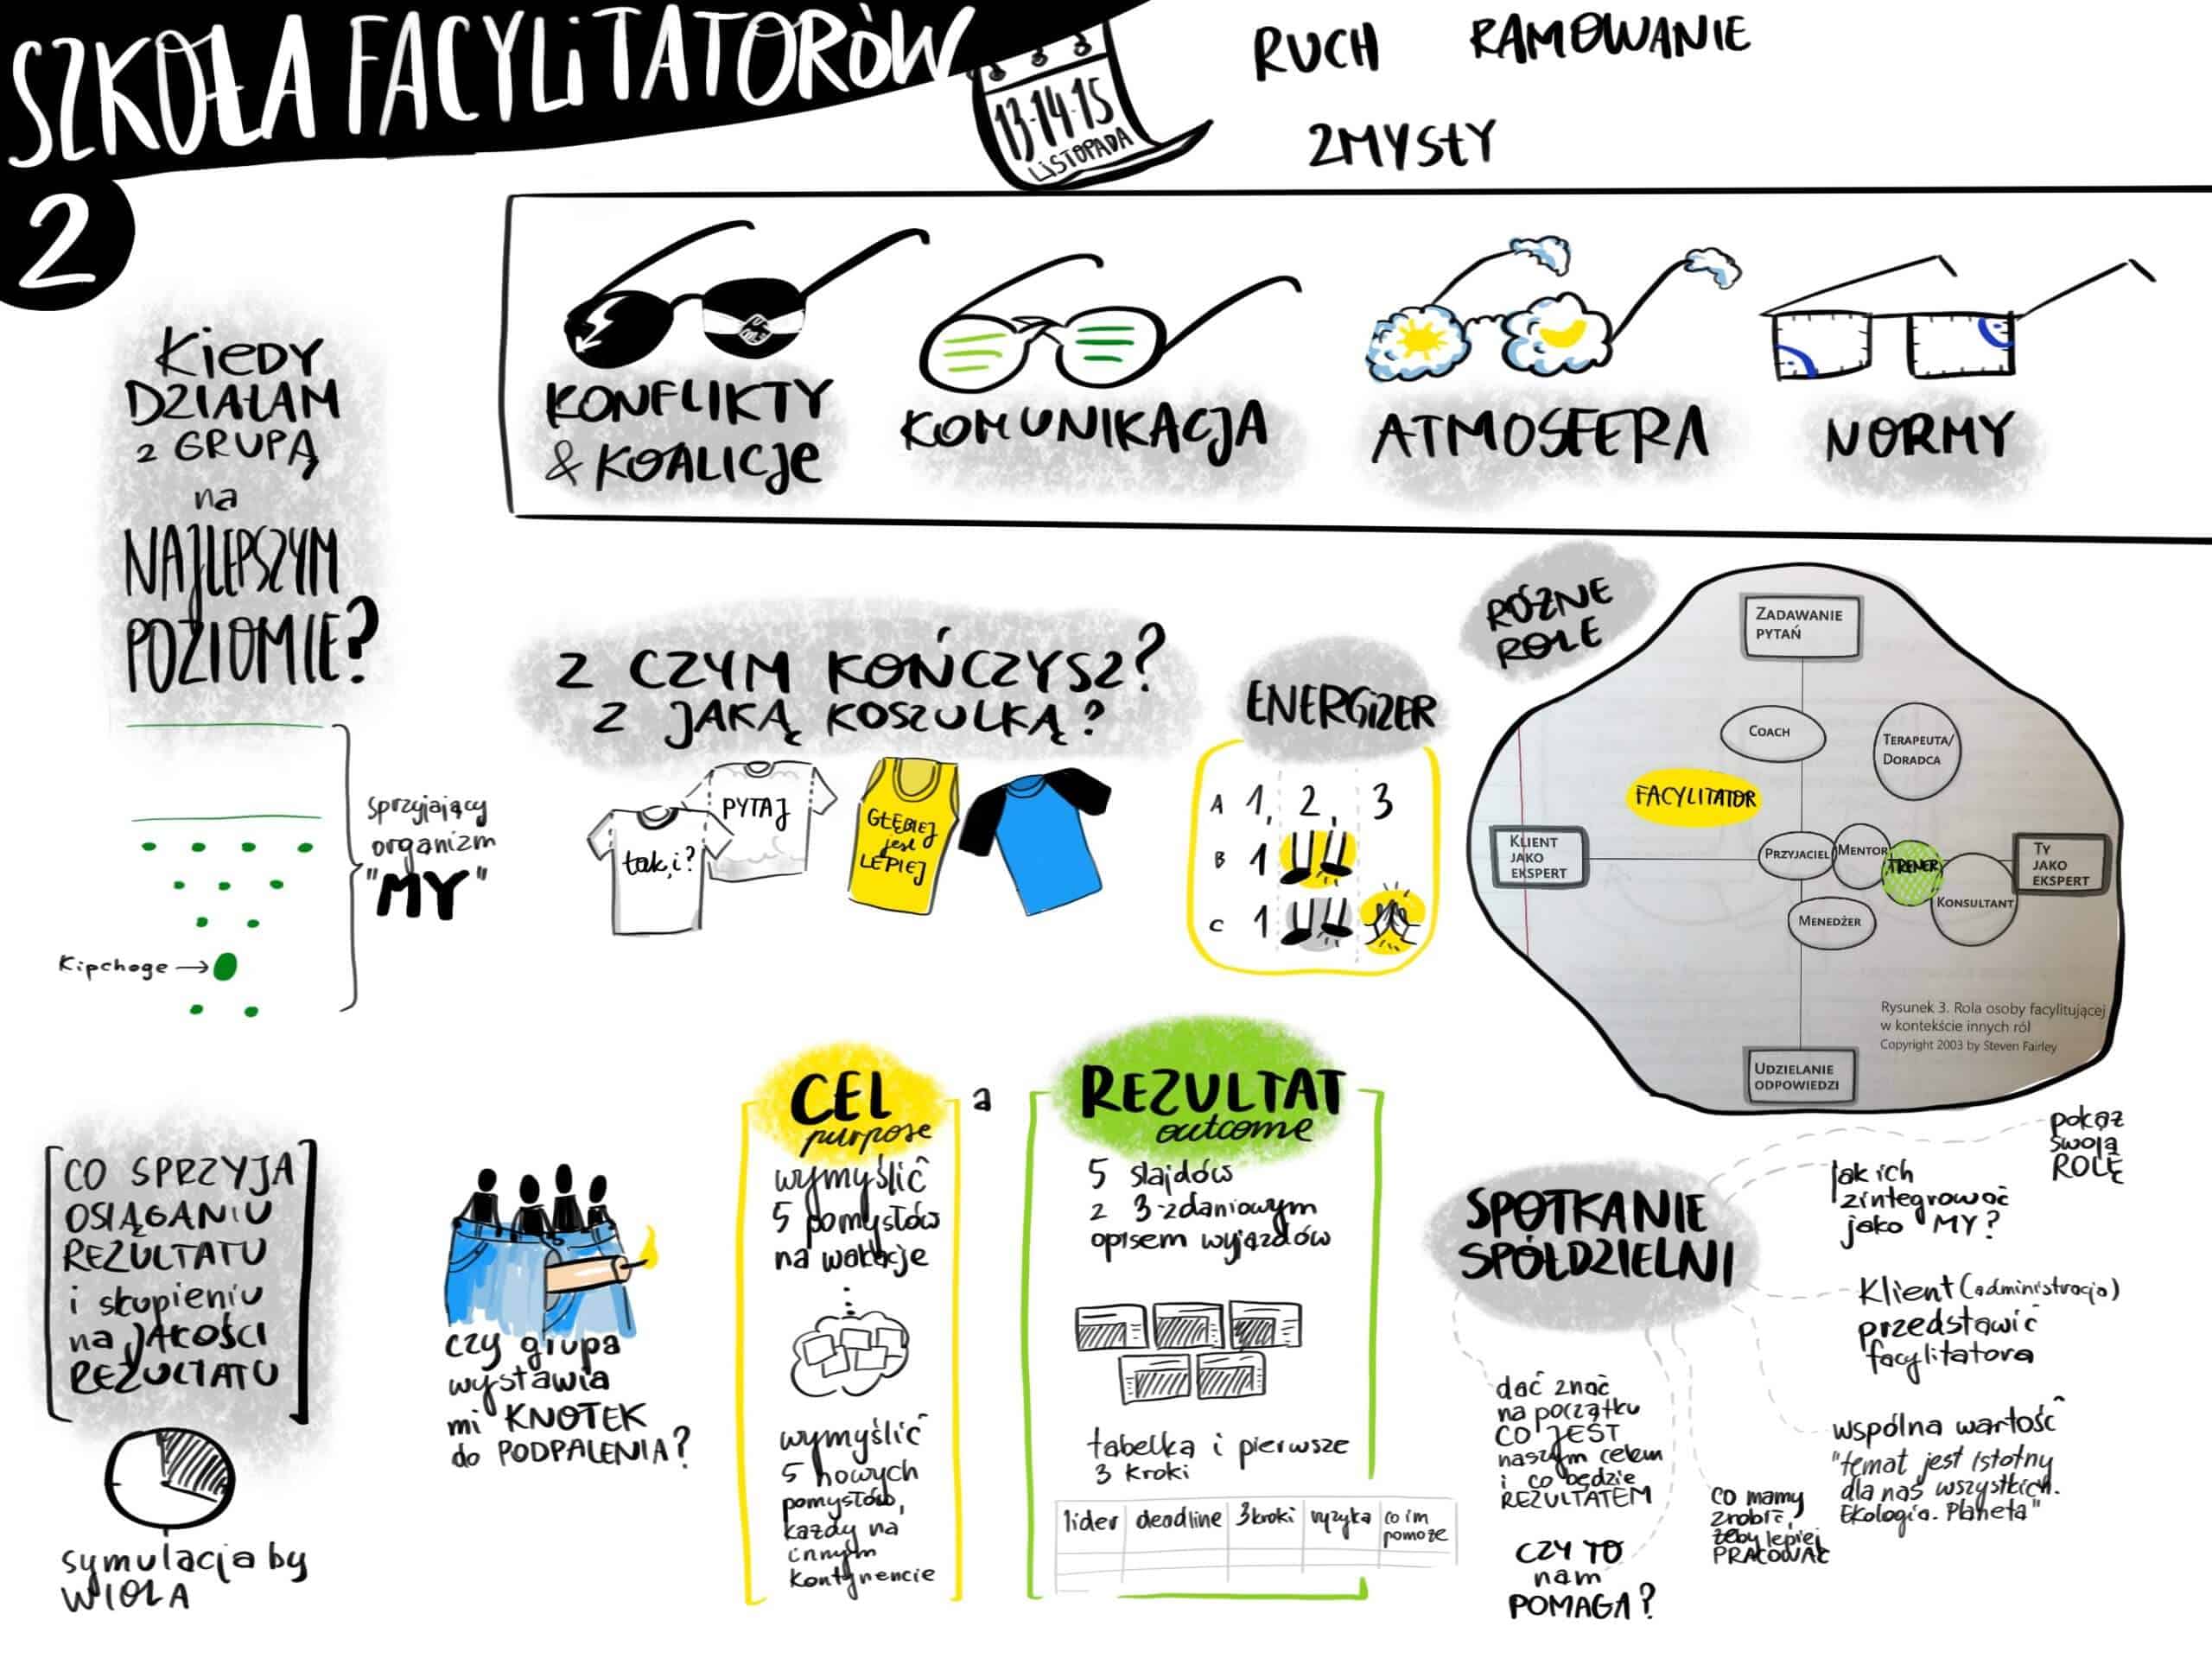 SZKOŁA FACYLITATORÓW
13-14-15
LISTOPADA
RUCH
RAMOWANIE
ZMYSŁY
2
KIEDY
DZIAŁAM
Z GRUPĄ
na
NAJLEPSZYM
POZIOMIE?
KONFLIKTY
& KOALICJE
KOMUNIKACJA
ATMOSFERA
NORMY
sprzyjający
organizm
"MY"
Kipchoge →
Z CZYM KOŃCZYSZ?
Z JAKĄ KOSZULKĄ?
tak, i?
PYTAJ
GŁĘBIEJ
jest
LEPIEJ
ENERGIZER
A 1, 2, 3
B 1
C 1
RÓŻNE
ROLE
ZADAWANIE
PYTAŃ
COACH
TERAPEUTA/
DORADCA
FACYLITATOR
KLIENT
JAKO
EKSPERT
PRZYJACIEL
MENTOR
TRENER
KONSULTANT
MENEDŻER
TY
JAKO
EKSPERT
UDZIELANIE
ODPOWIEDZI
Rysunek 3. Rola osoby facylitującej
w kontekście innych ról
Copyright 2003 by Steven Fairley
CO SPRZYJA
OSIĄGANIU
REZULTATU
i skupieniu
na JAKOŚCI
REZULTATU
symulacja by
WIOLA
czy grupa
wystawia
mi KNOTEK
do PODPALENIA?
CEL
purpose
wymyślić
5 pomysłów
na wakacje
wymyślić
5 nowych
pomysłów,
każdy na
innym
kontynencie
a
REZULTAT
outcome
5 slajdów
z 3-zdaniowym
opisem wyjazdów
tabelka i pierwsze
3 kroki
lider
deadline
3 kroki
ryzyka
co im
pomoże
SPOTKANIE
SPÓŁDZIELNI
pokaż
swoją
ROLĘ
jak ich
zintegrować
jako MY?
Klient (administracja)
przedstawić
facylitatora
wspólna wartość
"temat jest istotny
dla nas wszystkich.
Ekologia. Planeta"
co mamy
zrobić,
żeby lepiej
PRACOWAĆ
dać znać
na początku
CO JEST
naszym celem
i co będzie
REZULTATEM
CZY TO
nam
POMAGA?